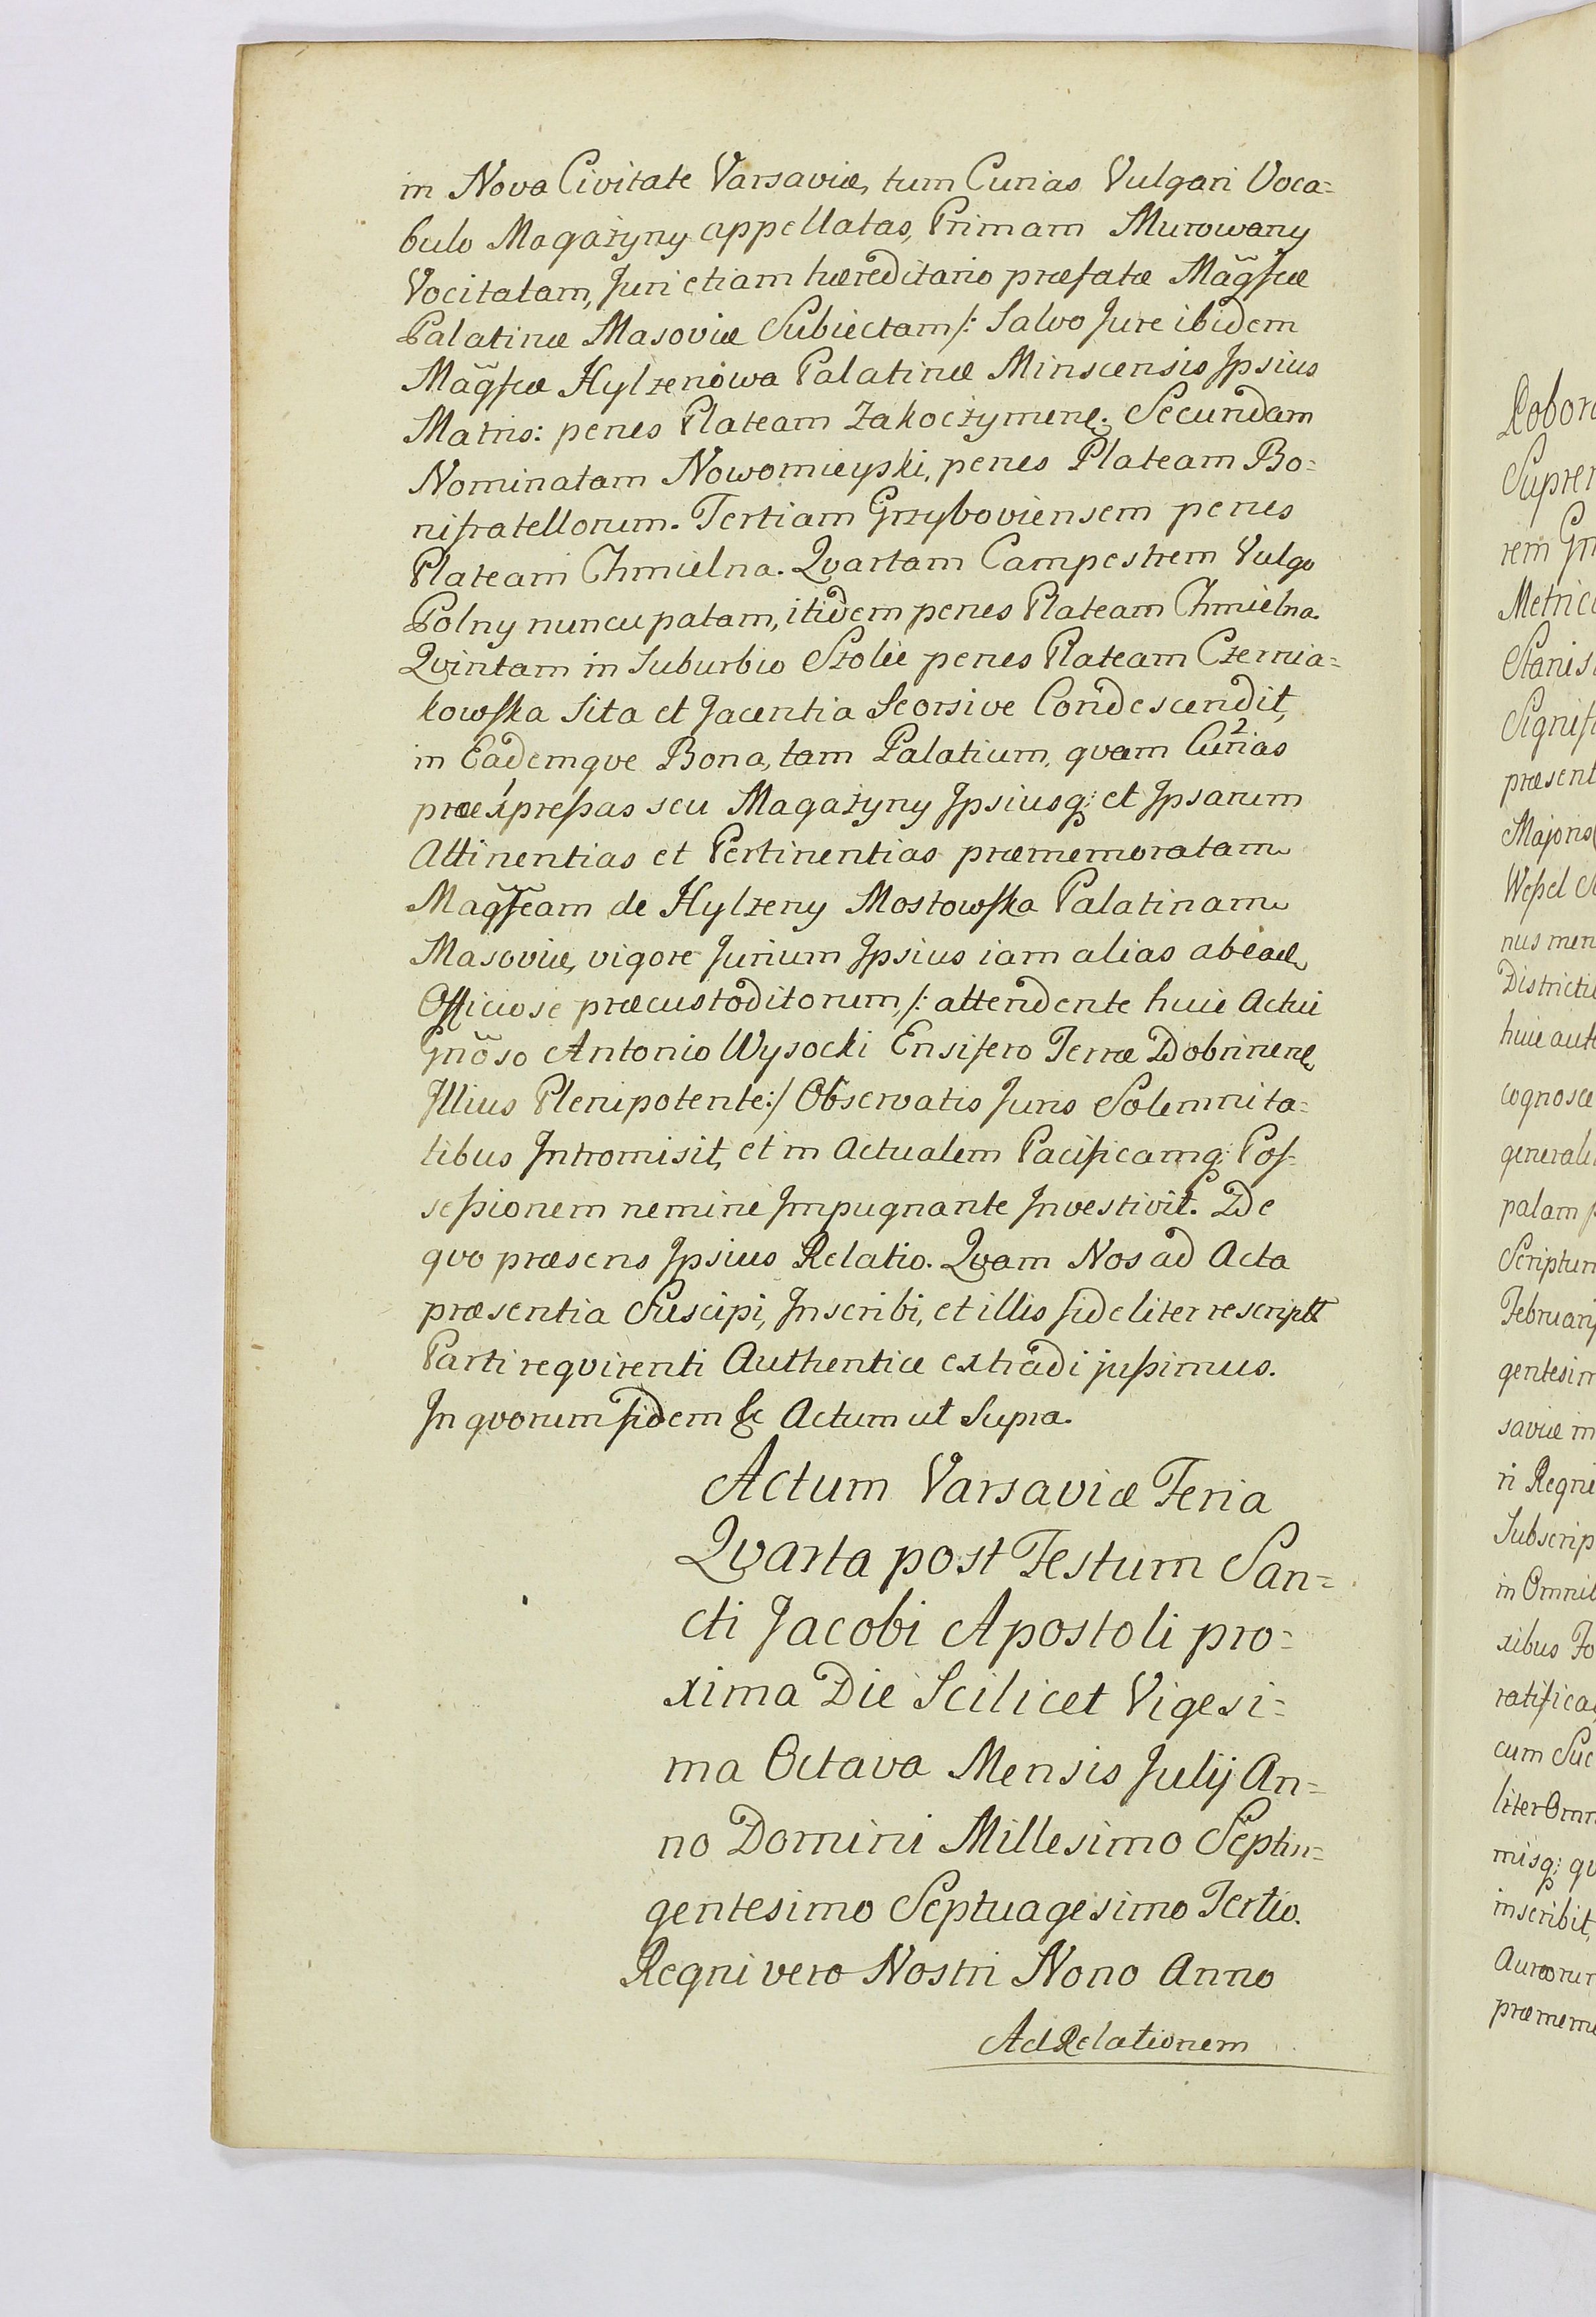 in Nova Civitate Varsaviæ, tum Curias Vulgari Voca=
bulo Magażyny appellatas, Primam Murowany
Vocitatam, Juri etiam hæreditario præfatæ Mãgfcæ
Palatinæ Masoviæ Subiectam /: Salvo Jure ibidem
Mãgfcæ Hylzenowa Palatinæ Minscensis Ipsius
Matris: penes Plateam Zakoczymens. Secundam
Nominatam Nowomieyski, penes Plateam Bo=
nifratellorum. Tertiam Grzyboviensem penes
Plateam Chmielna. Qvartam Campestrem Vulgo
Polny nuncupatam, itidem penes Plateam Chmielna.
Qvintam in Suburbio Szolić penes Plateam Czernia=
kowſka Sita et Jacentia Seorsive Condescendit,
in Eademqve Bona, tam Palatium, qvam Curias
præexpreſsas seu Magażyny Ipsiusq; et Ipsarum
Attinentias et Pertinentias præmemoratam
Magfcam de Hylzeny Mostowſka Palatinam
Masoviæ, vigore Jurium Ipsius iam alias ab eadē
Officiose præcustoditorum, /: attendente huic Actui
Gnõso Antonio Wysocki Ensifero Terræ Dobrinens
Illius Plenipotente :/ Observatis Juris Solemnita=
tibus Intromisit, et in Actualem Pacificamq; Poſ=
seſsionem nemine Impugnante Investivit. De
qvo præsens Ipsius Relatio. Qvam Nos ad Acta
præsentia Suscipi, Inscribi, et illis fideliter rescriptt
Parti reqvirenti Authenticæ extradi juſsimus.
In qvorum fidem &c Actum ut Supra.
Actum Varsaviæ Feria
Qvarta post Festum San=
cti Jacobi Apostoli pro=
xima Die Scilicet Vigesi=
ma Octava Mensis Julij An=
no Domini Millesimo Septin=
gentesimo Septuagesimo Tertio.
Regni vero Nostri Nono Anno
Ad Relationem